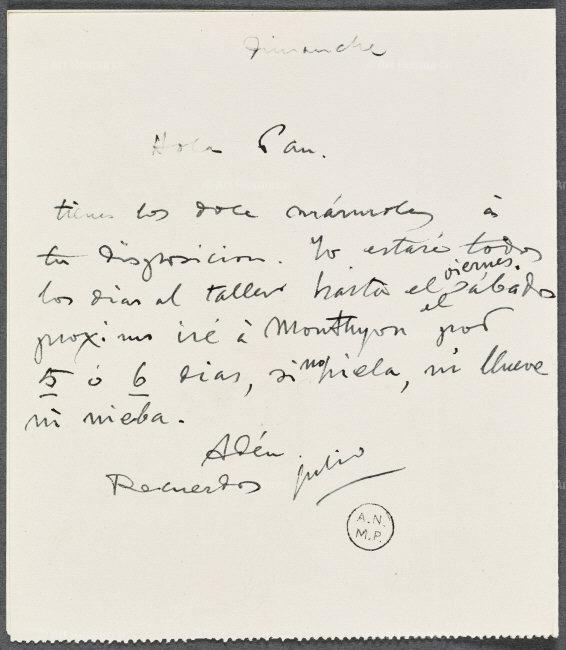 Dimanche
Hola Pau.
tienes los doce mármoles á
tu disposicion. Yo estaré todos
los dias al taller hasta el viernes. el sábado
proximo iré à Monthyon pod
5 ó 6 dias, si no hiela, ni llueve
ni nieba.
Adéu.
Recuerdos julio
A.N.
M.P.